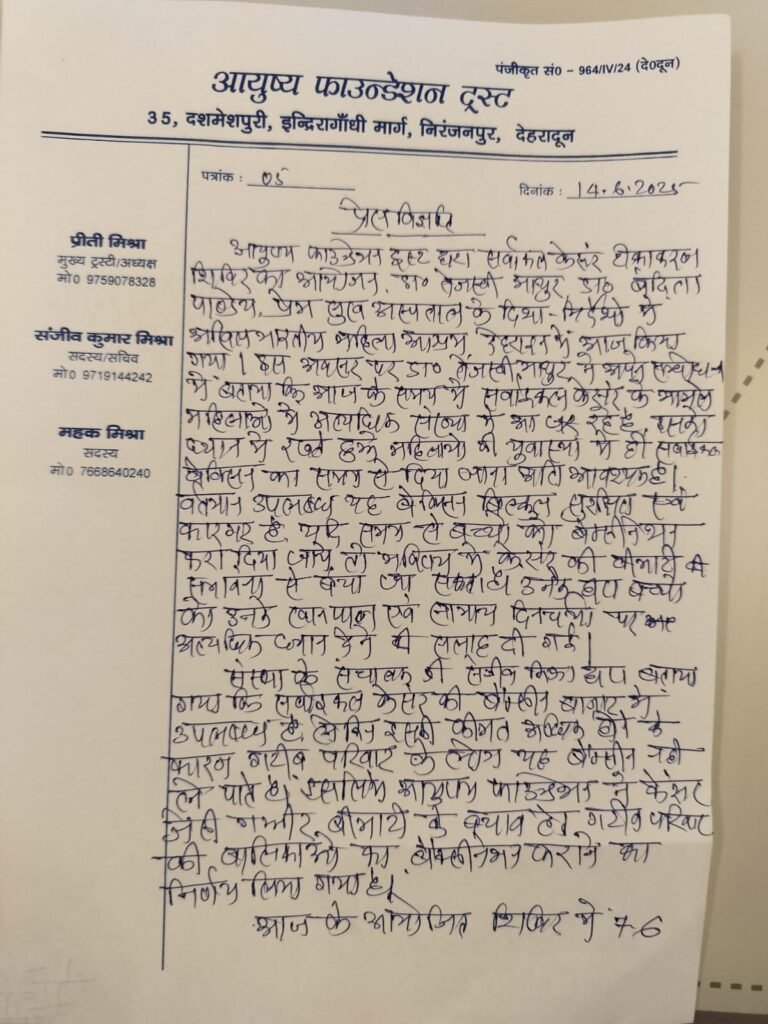 पंजीकृत सं० - 964/IV/24 (दे०दून)
आयुष्य फाउन्डेशन ट्रस्ट
35, दशमेशपुरी, इन्दिरागाँधी मार्ग, निरंजनपुर, देहरादून
पत्रांक : 05
दिनांक : 14.6.2025
प्रीती मिश्रा
मुख्य ट्रस्टी/अध्यक्ष
मो० 9759078328
संजीव कुमार मिश्रा
सदस्य/सचिव
मो० 9719144242
महक मिश्रा
सदस्य
मो० 7668640240
प्रेस विज्ञप्ति
आयुष्य फाउन्डेशन ट्रस्ट द्वारा सर्वाकल केसंर टीकाकरण
शिविर का आयोजन, डा० तेजस्वी माथुर डा० वंदिता
पाण्डेय, प्रेम सुख अस्पताल के दिशा-निर्देशो मे
अखिल भारतीय महिला आश्रम देहरादून मे आज किया
गया। इस अवसर पर डा० तेजस्वी माथुर ने अपने सम्बोधन
मे बताया कि आज के समय मे सर्वाइकल केसंर के मामले
महिलाओ मे अत्यधिक संख्या मे आ रहे है, इसको
ध्यान मे रखते हुऐ महिलाओ की युवास्था मे ही सर्वाइकल
वैक्सिन का समय से दिया जाना अति आवश्यक है।
वर्तमान उपलब्ध यह वैक्सिन बिल्कुल सुरक्षित एवं
कारगर है, यदि समय से बच्चो को वैक्सीनेशन
करा दिया जाये तो भविष्य मे केसंर की बीमारी की
सम्भावना से बचा जा सकता है। उनके द्वारा बच्चो
को उनके खानपान एवं सामान्य दिनचर्या पर
अत्यधिक ध्यान देने की सलाह दी गई।
संस्था के संचालक श्री संजीव मिश्रा द्वारा बताया
गया कि सर्वाइकल केसंर की वैक्सीन बाजार मे
उपलब्ध है, लेकिन इसकी कीमत अधिक होने के
कारण गरीब परिवार के लोग यह वैक्सीन नही
ले पाते है। इसलिये आयुष्य फाउन्डेशन ने केंसर
जैसी गम्भीर बीमारी के बचाव हेतु गरीब परिवार
की बालिकाओ का वैक्सीनेशन कराने का
निर्णय लिया गया है।
आज के आयोजित शिविर मे 76